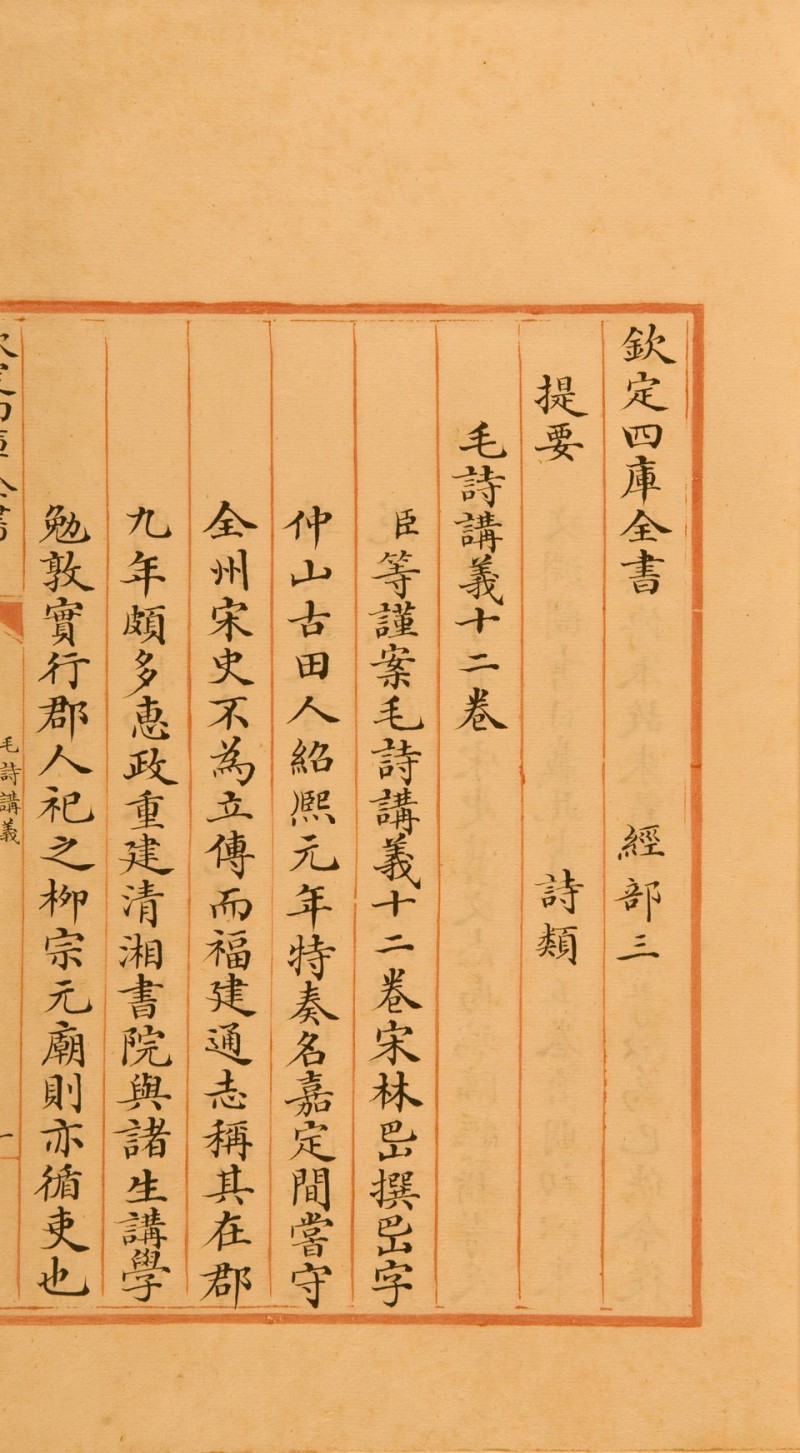 欽定四庫全書 經部三
提要 詩類
毛詩講義十二卷
臣等謹案毛詩講義十二卷宋林岊撰岊字
仲山古田人紹熙元年特奏名嘉定間嘗守
全州宋史不為立傳而福建通志稱其在郡
九年頗多惠政重建清湘書院與諸生講學
勉敦實行郡人祀之柳宗元廟則亦循吏也
毛詩講義